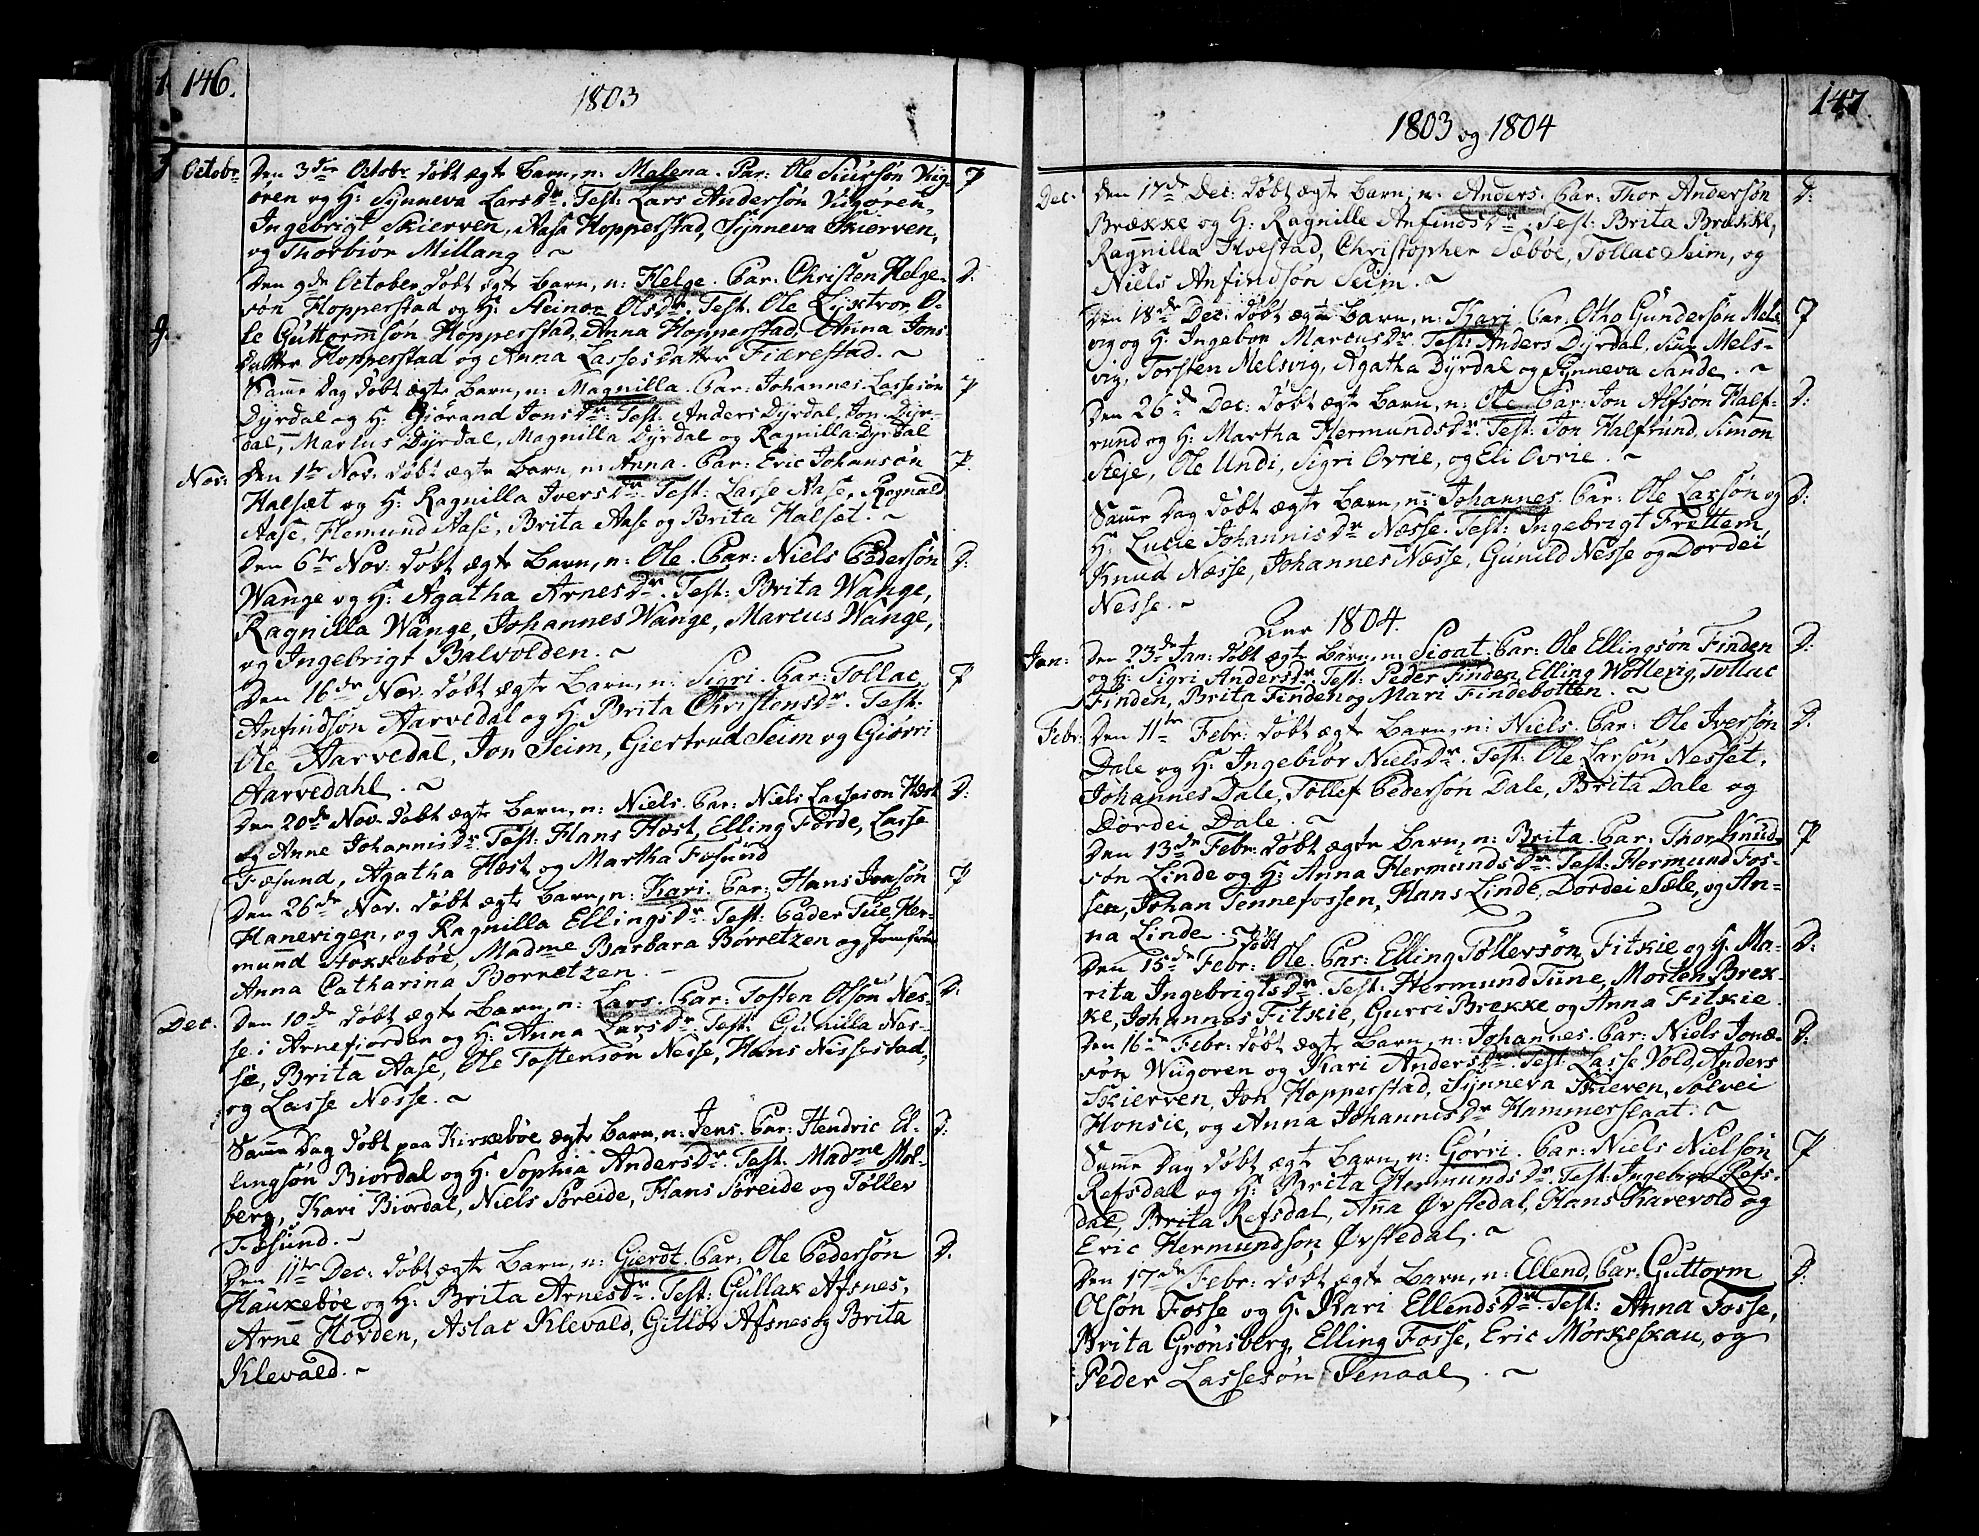 146.
1803
Octobr
Den 3die Octobr. døbt ægte Barn, n: Malena. Par: Ole Siursøn Vig-
øren og H: Synneva LarsDr. Test: Lars Andersøn Vigøren,
Ingebrigt Skierven, Aasa Hopperstad, Synneva Skierven,
og Thorbiør Millang. ~
P
Den 9de October døbt ægte Barn, n: Helge. Par: Christen Helge-
søn Hopperstad og H: OlsDr. Test: Ole O-
le Guttormsøn Hopperstad, Anna Hopperstad, Anna Jons-
datter Hopperstad og Anna Lassesdatter Fiærestad. ~
D:
Samme Dag døbt ægte Barn, n: Magnilla. Par: Johannes Lassesøn
Dyrdal og H: Giørand JonsDr. Test: Anders Dyrdal, Jon Dyr-
dal, Marcus Dyrdal, Magnilla Dyrdal og Ragnilla Dyrdal
P
Nov:
Den 1te Nov. døbt ægte Barn, n: Anna. Par: Eric Johansøn
Halsæt og H: Ragnilla IversDr. Test: Lasse Aase, Rognald
Aase, Hemund Aase, Brita Aase og Brita Halsæt. ~
P.
Den 6te Nov: døbt ægte Barn, n: Ole. Par: Niels Pedersøn
Wange og H: Agatha ArnesDr. Test: Brita Wange,
Ragnilla Wange, Johannes Wange, Marcus Wange,
og Ingebrigt Balvolden. ~
D:
Den 16de Nov. døbt ægte Barn, n: Sigri. Par: Tollac
Anfindsøn Aarvedal og H. Brita ChristensDr. Test:
Ole Aarvedal, Jon Seim, Giertrud Seim og Giørri
Aarvedahl. ~
P
Den 20de Nov. døbt ægte Barn, n: Niels. Par: Niels Lassesøn Hæst
og Anne JohannisDr. Test: Hans Hæst, Elling Førde, Lasse
Fæsund, Agatha Hæst og Martha Fæsund
D:
Den 26de Nov. døbt ægte Barn, n: Kari. Par: Hans Jonsøn
Hanevigen, og Ragnilla EllingsDr. Test: Peder Tue, Her-
mund Stokkebøe, Madme Barbara Børretzen og Jomfrue
Anna Catharina Børretzen. ~
P
Dec.
Den 10de døbt ægte Barn, n: Lars. Par: Tosten Olsøn Nes-
se i Arnefiorden og H: Anna LarsDr. Test: Gunilla Nes-
se, Brita Aase, Ole Tostensøn Nesse, Hans Nissestad,
og Lasse Nesse. ~
D:
Samme Dag døbt paa Kirkebøe ægte Barn, n: Jens. Par: Hendric El-
lingsøn Biordal og H: Sophia AndersDr. Test. Madme Mol-
berg, Kari Biordal, Niels Søreide, Hans Søreide og Tøllev
Fæsund. ~
D:
Den 11te Dec: døbt ægte Barn, n: Gierdt. Par: Ole Pedersøn
Haukebøe og H: Brita ArnesDr. Test: Gullak Afsnes,
Arne Hovden, Aslac Klevald, Gitløv Afsnes og Brita
Klevald. ~
D.
147
1803 og 1804
Dec:
Den 17de Dec: døbt ægte Barn, n: Anders. Par: Thor Andersøn
Brække og H: Ragnille AnfindsDr. Test: Brita Brække,
Ragnilla Hovstad, Christopher Sæbøe, Tollac Seim, og
Niels Anfindsøn Seim. ~
D:
Den 18de Dec: døbt ægte Barn, n: Kari. Par: Otho Gundersøn Mels
vig og H: Ingebor MarcusDr. Test: Anders Dyrdal, Siur Mels-
vig, Torsten Melsvig, Agatha Dyrdal og Synneva Sande. ~
P
Den 26de Dec: døbt ægte Barn, n: Ole. Par: Jon Alfsøn Half-
rund og H: Martha HermundsDr. Test: Jon Halfrund, Simon
Steje, Ole Undi, Sigri Ovrie, og Eli Ovrie. ~
D:
Samme Dag døbt ægte Barn, n: Johannes. Par: Ole Larsøn og
H: Lucie JohannisDr Næsse. Test: Ingebrigt Frettem,
Knud Næsse, Johannes Næsse, Gunild Nesse og Dordei
Nesse. ~
D:
Den 1804.
Jan:
Den 23de Jan: døbt ægte Barn, n: Sioat. Par: Ole Ellingsøn Finden
og H: Sigri AndersDr. Test: Peder Finden, Elling Wollevig, Tollac
Finden, Brita Finden og Mari Findebotten. ~
D:
Febr:
Den 11te Febr: døbt ægte Barn, n: Niels. Par: Ole Iversøn
Dale og H: Ingebiør NielsDr. Test: Ole Larsøn Nesset,
Johannes Dale, Tollef Pedersøn Dale, Brita Dale og
Dordei Dale. ~
D:
Den 13de Febr: døbt ægte Barn, n: Brita. Par: Thor Knud-
søn Linde og H: Anna HermundsDr. Test: Hermund Fos-
sen, Johan Tennefossen, Hans Linde, Dordei Sæle, og An-
na Linde. ~
P
Den 15de Febr: døbt Ole. Par: Elling Tollevsøn Fitkie og H. Ma-
rita IngebrigtsDr. Test: Hermund Tune, Morten Brek-
ke, Johannes Fitkie, Gurri Brekke og Anna Fitkie.
D:
Den 16de Febr: døbt ægte Barn, n: Johannes. Par: Niels Jonæ-
søn Wigøren og Kari AndersDr. Test: Lasse Vold, Anders
Skierven, Jon Hopperstad, Synneva Skieven, Solvei
Honsie, og Anna JohannisDr Hammersland. ~
D:
Samme Dag døbt ægte Barn, n: Gørri. Par: Niels Nielsøn
Refsdal og H: Brita HermundsDr. Test: Ingebrigt Refs-
dal, Brita Refsdal, Anna Øvstedal, Hans Karevold og
Eric Hermundsøn Øvstedal. ~
P
Den 17de Febr: døbt ægte Barn, n: Ellend. Par: Guttorm
Olsøn Fosse og H. Kari EllendsDr. Test: Anna Fosse,
Brita Grønsberg, Elling Fosse, Eric Mørkeskau, og
Peder Lassesøn Tenaal. ~
D: